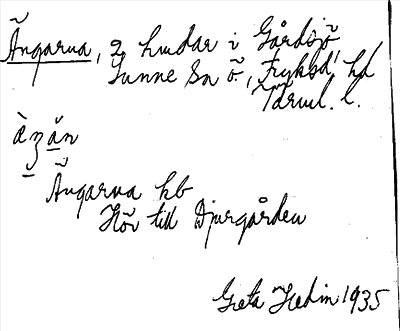 Ängarna, 2 hmdar i Gårdsjö,
Sunne Sn ö, Fryksd. hd
Värml. l.
àŋạ̀n
Ängarna hb
Hör till Djurgården
Greta Hedin 1935